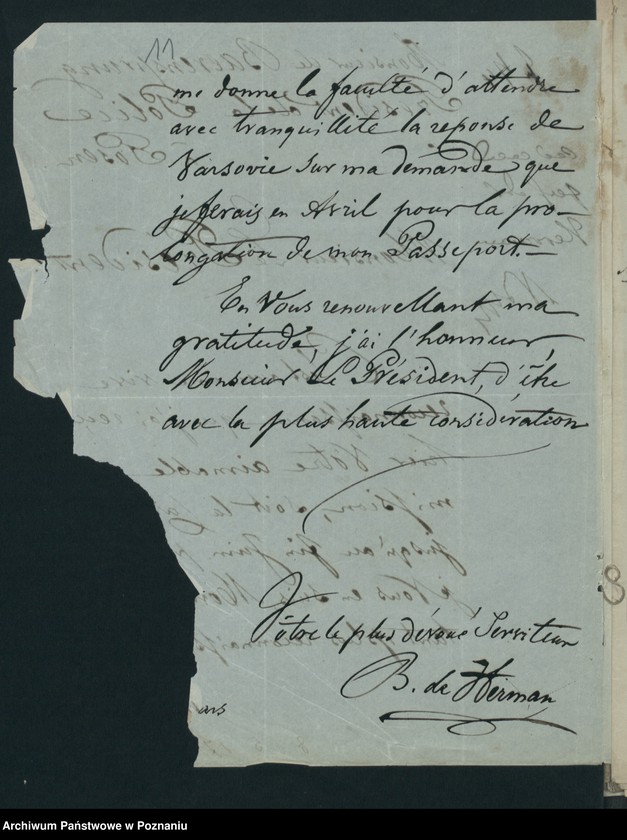 11
me donne la faculté d'attendre
avec tranquillité la reponse de
Varsovie sur ma demande que
je ferais en Avril pour la pro-
longation de mon Passeport.—
En Vous renouvellant ma
gratitude, j'ai l'honneur,
Monsieur Le Président, d'être
avec la plus haute considération
Vôtre le plus dévoué Serviteur
B. de Herman
ars
8
Archiwum Państwowe w Poznaniu